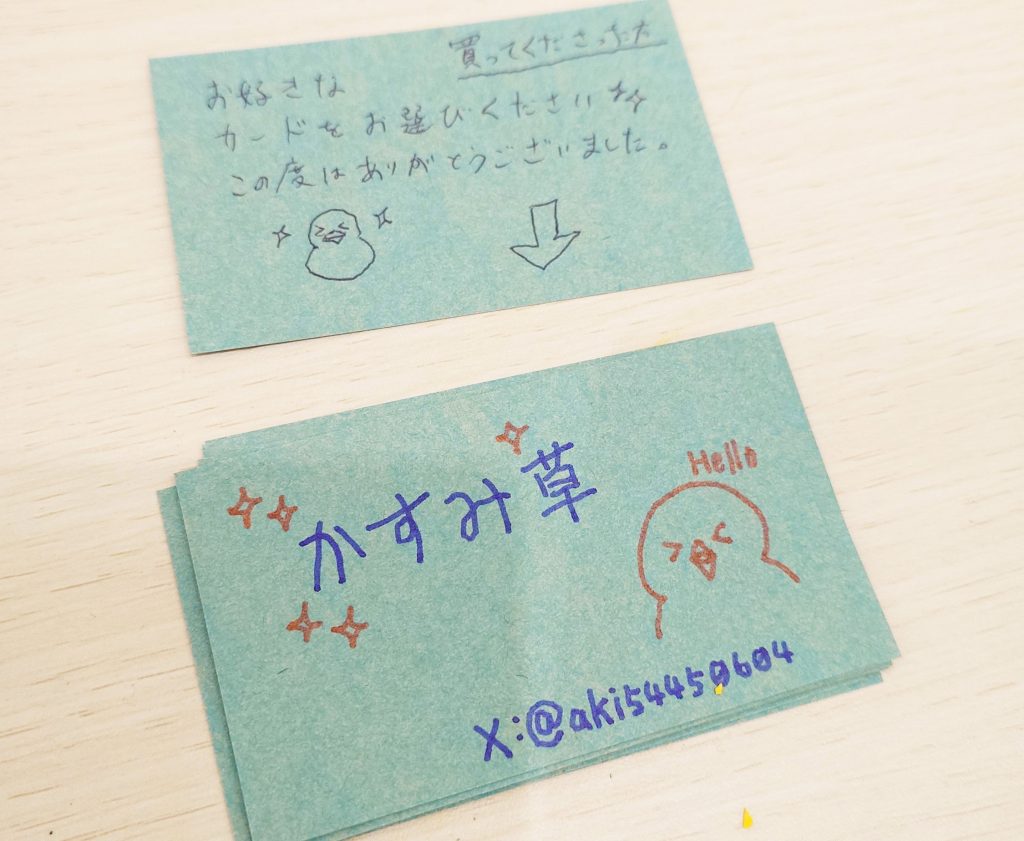 買ってくださった方
お好きな
カードをお選びください
この度はありがとうございました。
かすみ草
Hello
X:@aki54450604